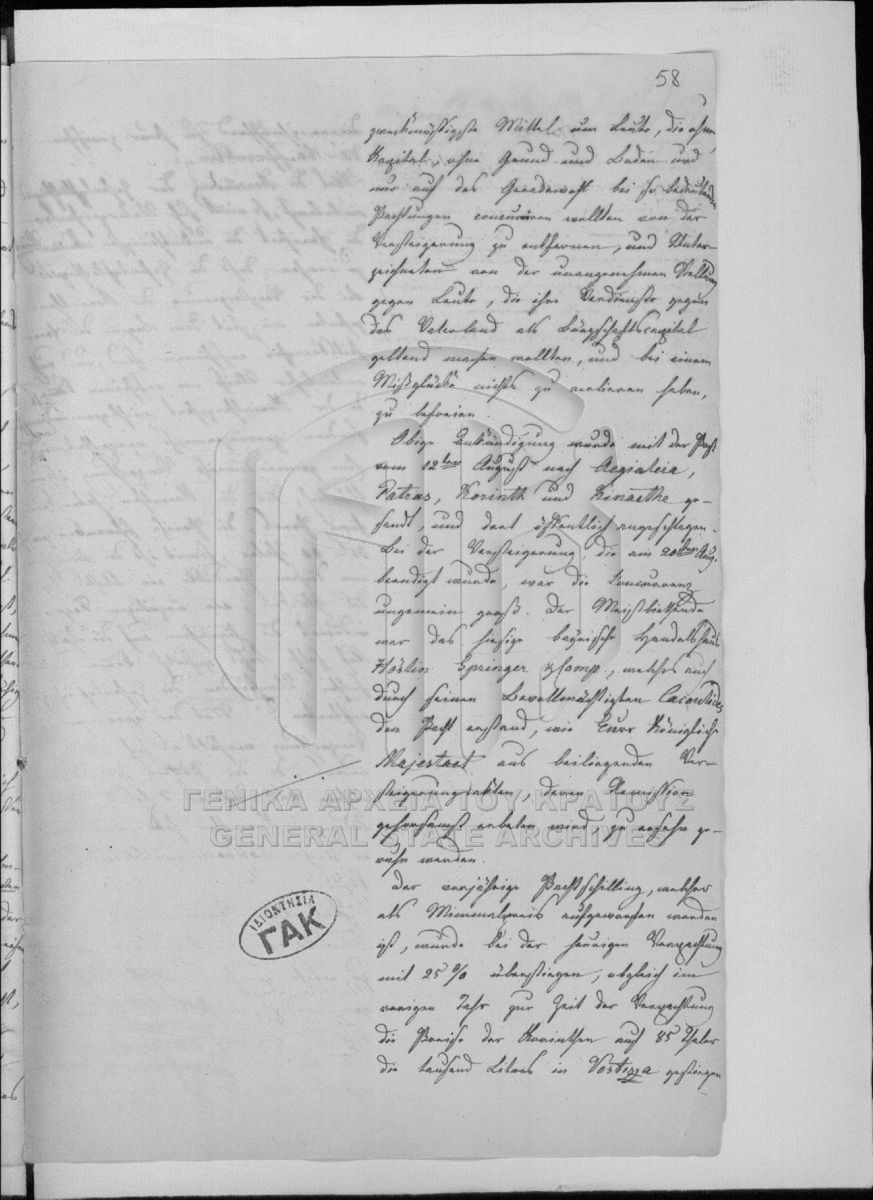 58
zweckmäßigste Mittel um Leute, die ohne
Kapital, ohne Grund und Boden und
nur auf das Geradewohl bei so bedeutenden
Pachtungen concurriren wollten von der
Versteigerung zu entfernen, und Unter-
zeichneten von der unangenehmen Stellung
gegen Leute, die ihre Verdienste gegen
das Vaterland als Bürgschaftscapital
geltend machen wollten, und bei einem
Mißglücke nichts zu verlieren haben,
zu befreien.
Obige Ankündigung wurde mit der Post
vom 12ten August nach Aegialeia,
Patras, Korinth und Kinaethe ge-
sandt, und dort öffentlich angeschlagen.
Bei der Versteigerung, die am 20ten Aug.
beendigt wurde, war die Concurrenz
ungemein groß. Der Meistbiethende
war das hiesige bayrische Handelshaus
Höslin Springer & Comp., welches auch
durch seinen Bevollmächtigten
den Pacht erstand, wie Eure Königliche
Majestaet aus beiliegenden Ver-
steigerungsakten, deren Remission
gehorsamst erbeten wird, zu ersehen ge-
ruhn werden.
Der vorjährige Pachtschilling, welcher
als Minimalpreis aufgeworfen worden
ist, wurde bei der heurigen Verpachtung
mit 25 % überstiegen, obgleich im
vorigen Jahr zur Zeit der Verpachtung
die Preise der Korinthen auf 85 Thaler
die tausend Libres in Vostizza gestiegen
ΓΕΝΙΚΑ ΑΡΧΕΙΑ ΤΟΥ ΚΡΑΤΟΥΣ
GENERAL STATE ARCHIVES
ΙΔΙΟΚΤΗΣΙΑ
ΓΑΚ